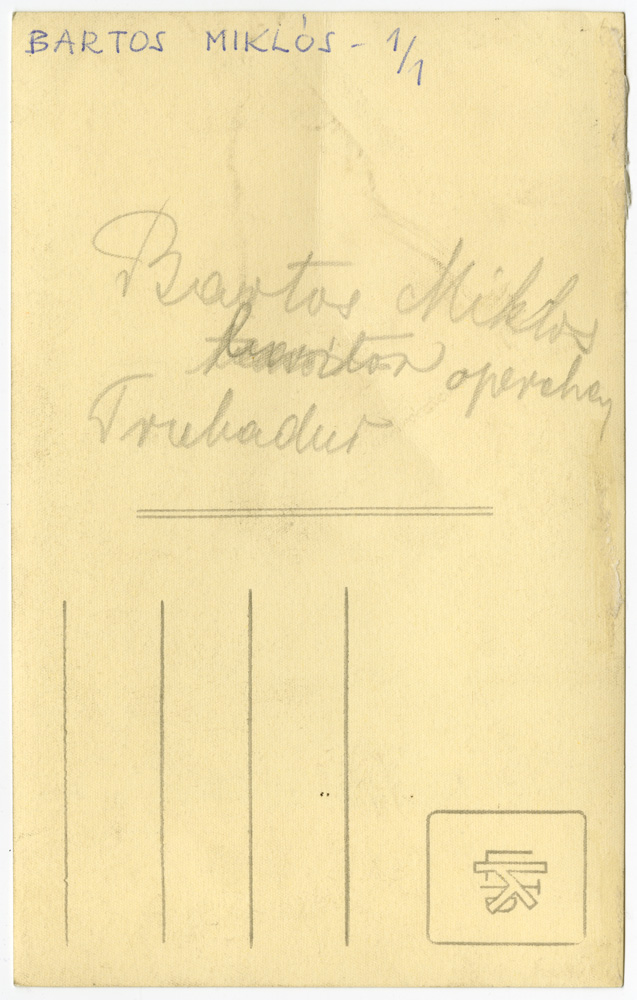 BARTOS MIKLÓS - 1/1
Bartos Miklos
operaház
Trubadur